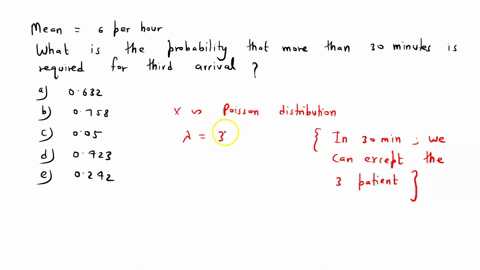 Mean = 6 per hour
What is the probability that more than 30 minutes is
required for third arrival ?
a) 0.632
b) 0.758
c) 0.05
d) 0.423
e) 0.242
X ~ Poisson distribution
λ = 3
{ In 30 min ; we
can except the
3 patient }